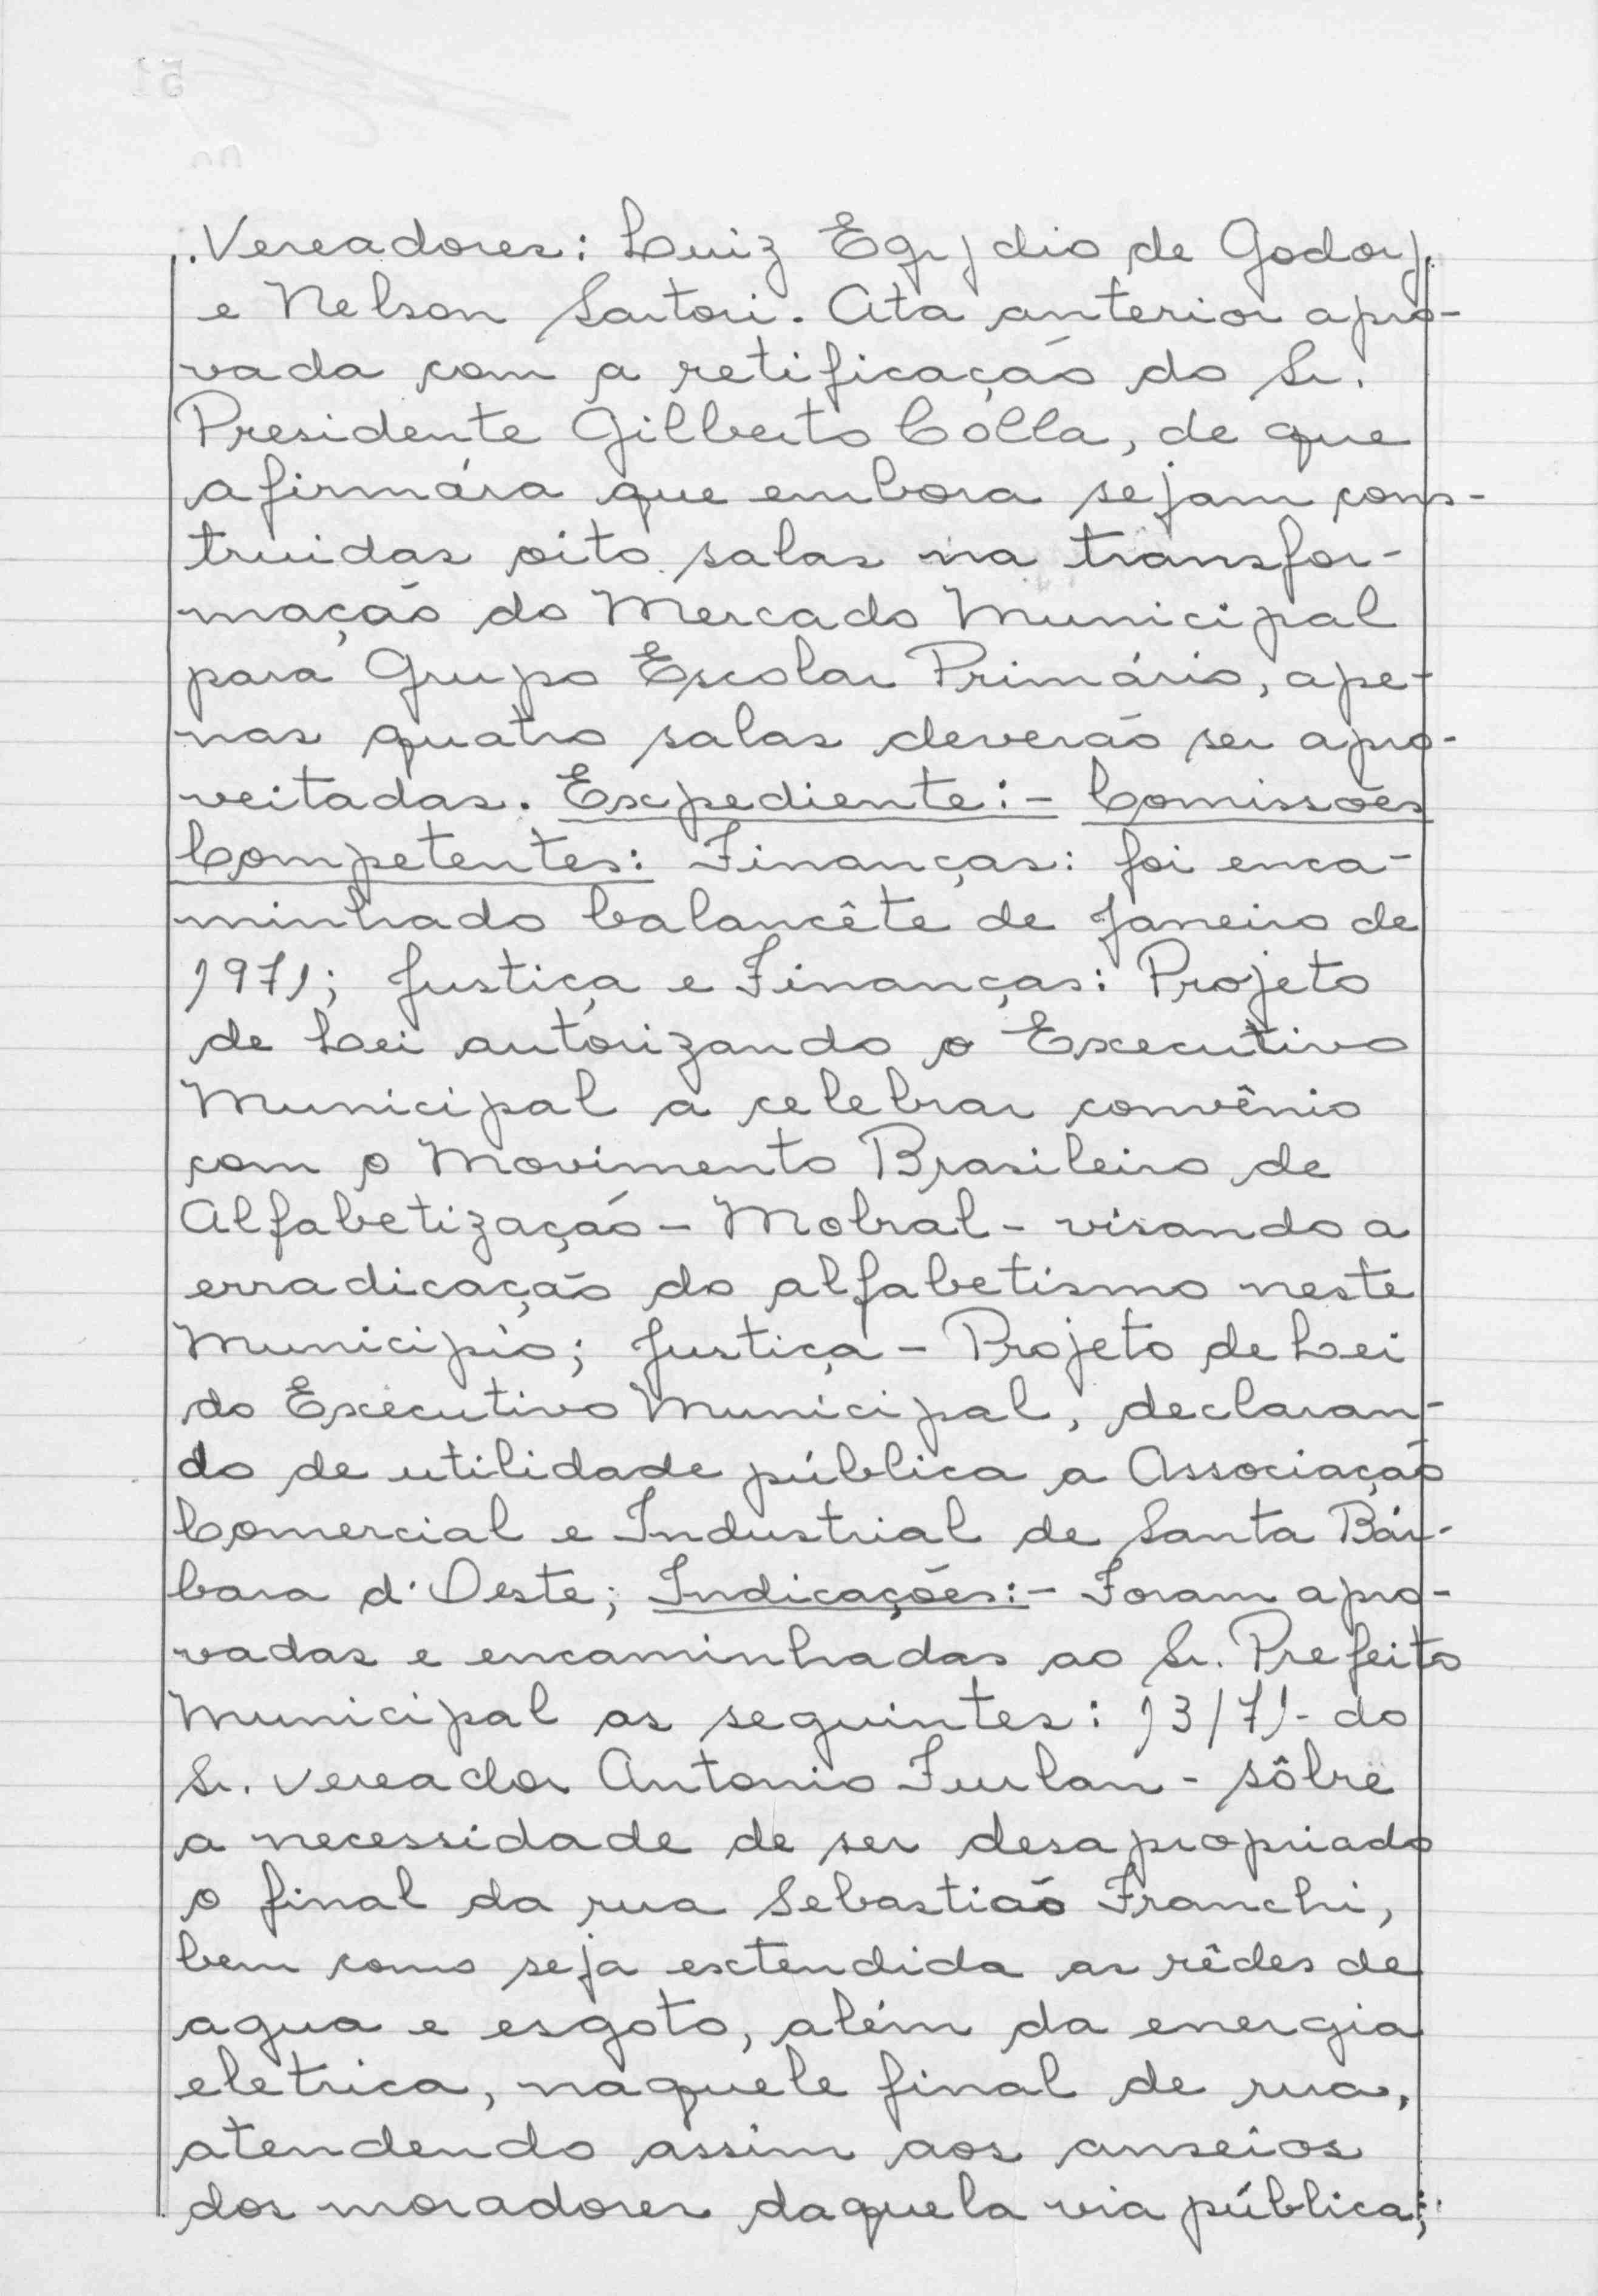 Vereadores: Luiz Egydio de Godoy
e Nelson Sartori. Ata anterior apro-
vada com a retificação do Sr.
Presidente Gilberto Colla, de que
afirmára que embora sejam cons-
truidas oito salas na transfor-
mação do Mercado Municipal
para Grupo Escolar Primário, ape-
nas quatro salas deverão ser apro-
veitadas. Expediente:- Comissões
Competentes: Finanças: foi enca-
minhado balancête de Janeiro de
1971; Justiça e Finanças: Projeto
de Lei autorizando o Executivo
Municipal a celebrar convênio
com o Movimento Brasileiro de
Alfabetização - Mobral - visando a
erradicação do alfabetismo neste
Municipio; Justiça - Projeto de Lei
do Executivo Municipal, declaran-
do de utilidade pública a Associação
Comercial e Industrial de Santa Bár-
bara d'Oeste; Indicações:- Foram apro-
vadas e encaminhadas ao Sr. Prefeito
Municipal as seguintes: 13/71- do
Sr. vereador Antonio Furlan - sôbre
a necessidade de ser desapropriado
o final da rua Sebastião Franchi,
bem como seja extendida as rêdes de
agua e esgoto, além da energia
eletrica, naquele final de rua,
atendendo assim aos anseios
dos moradores daquela via pública;